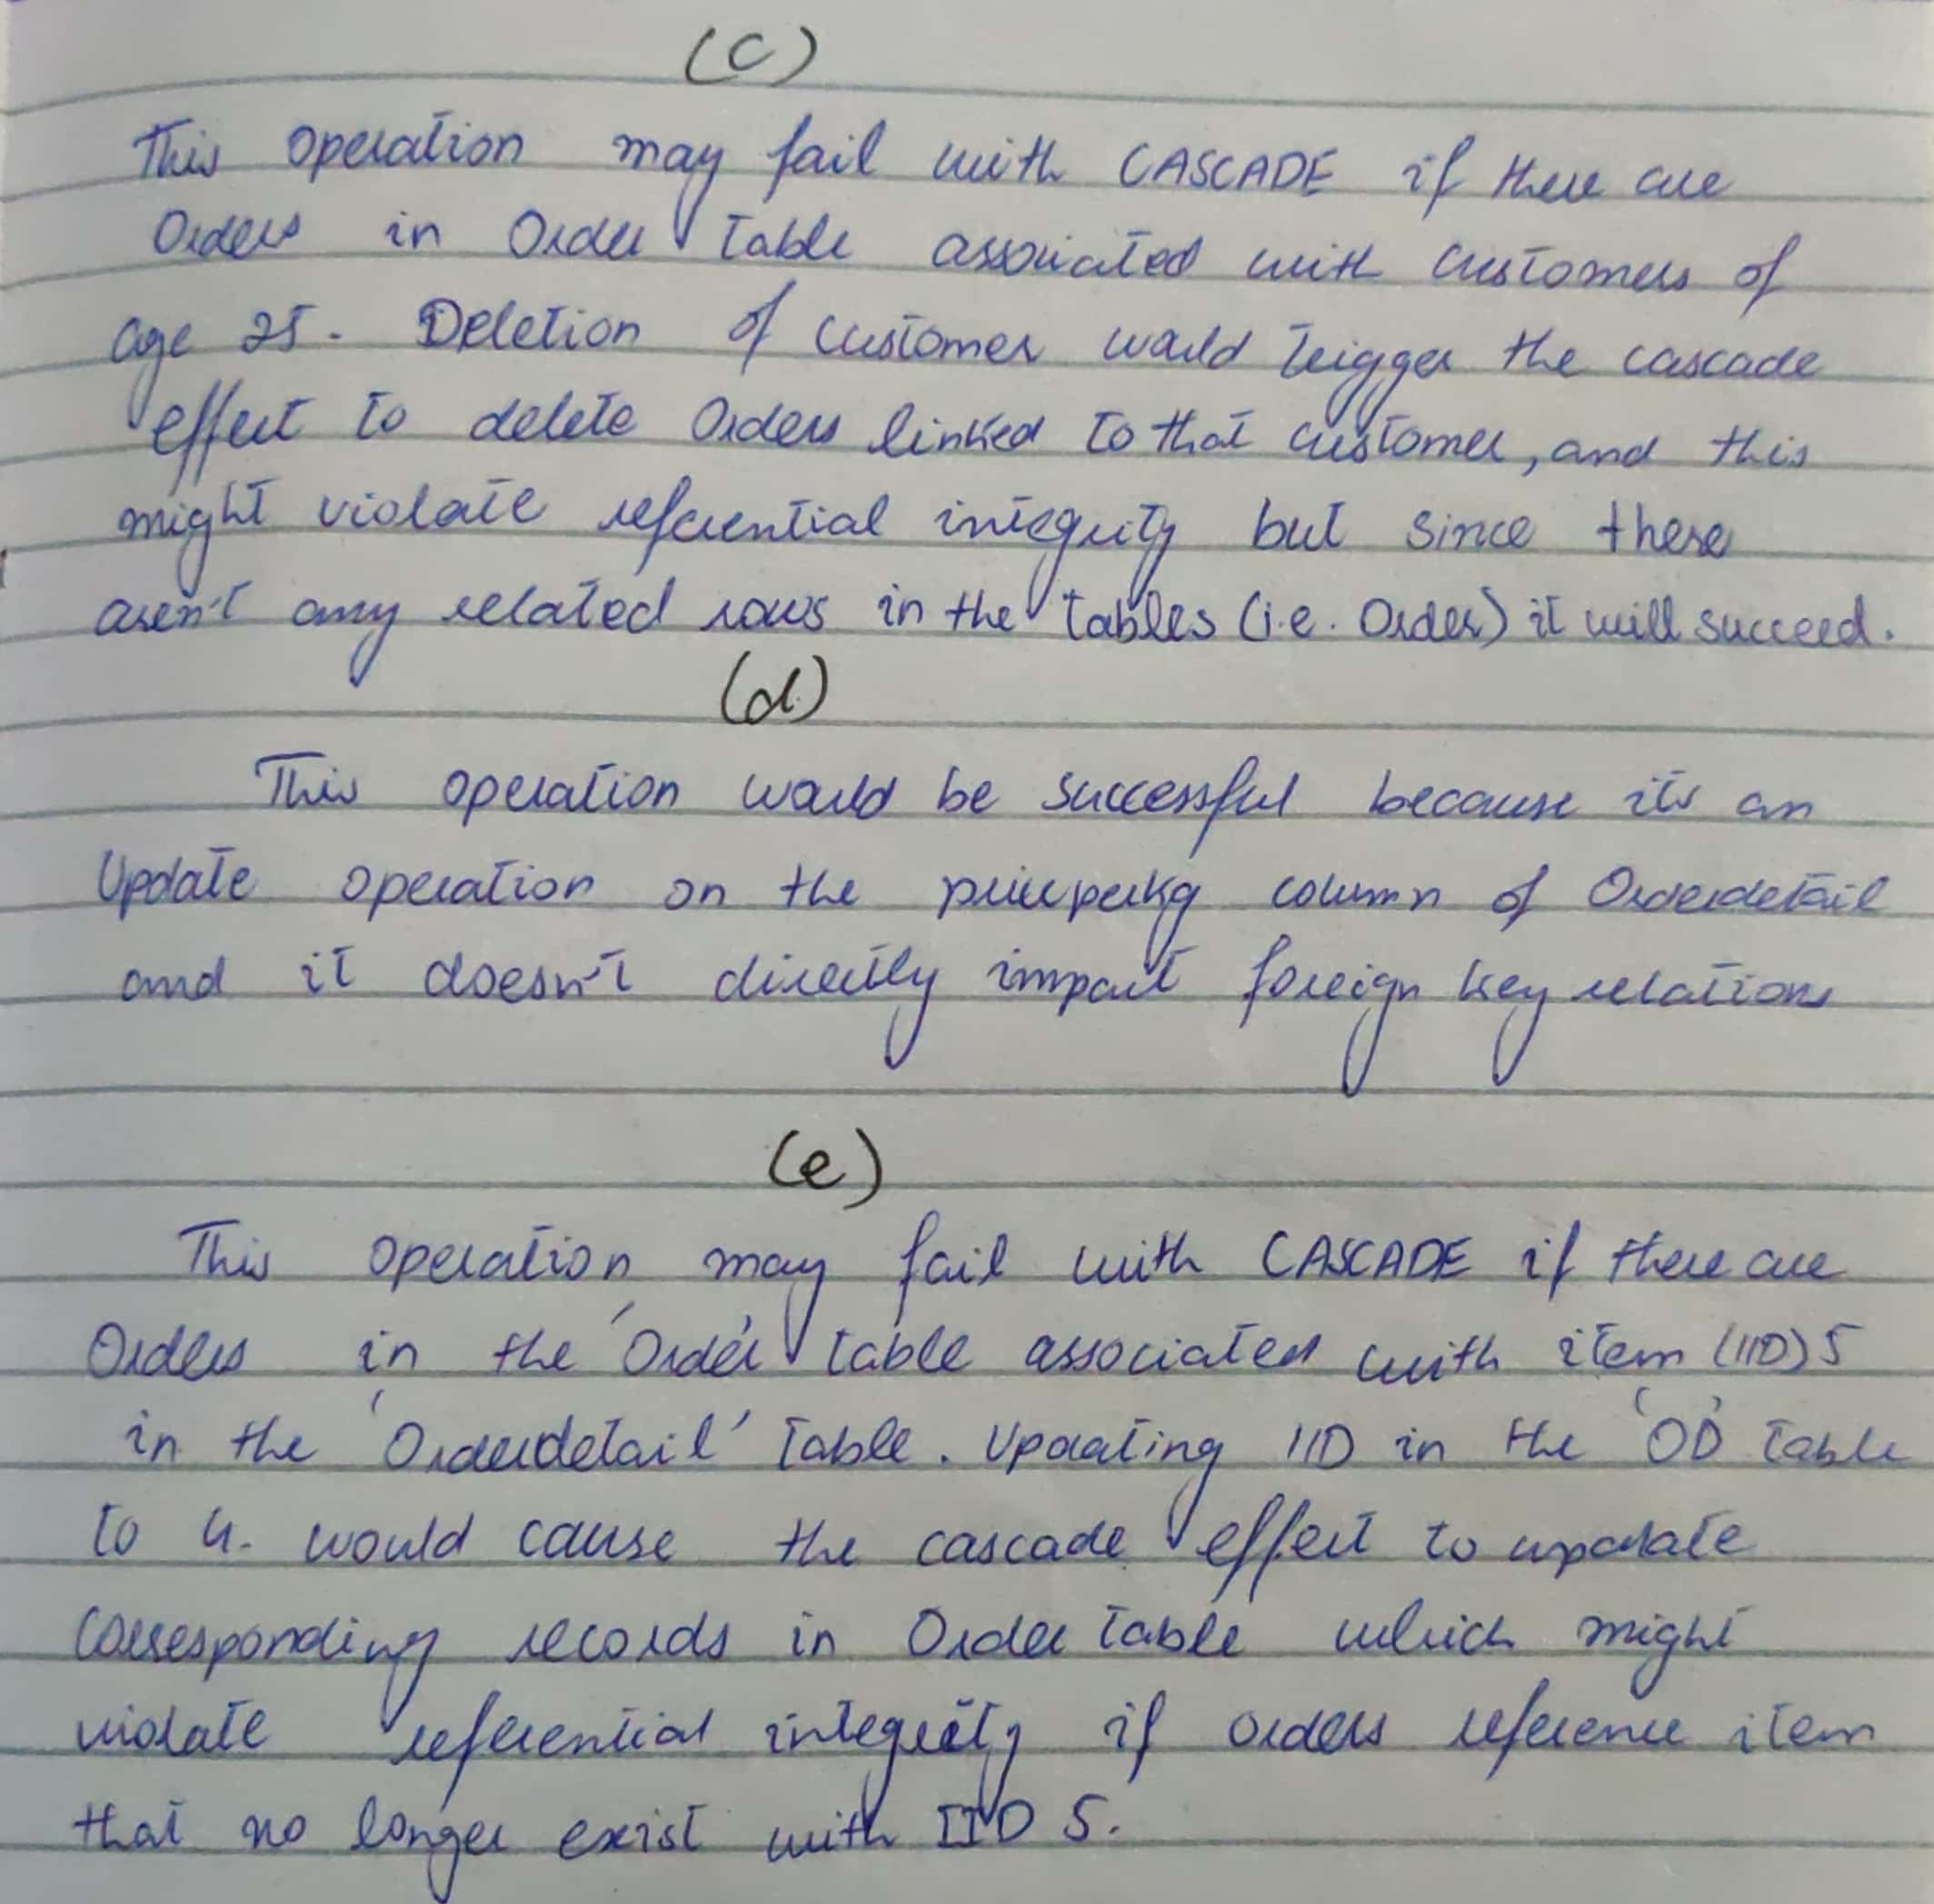 (c)
This operation may fail with CASCADE if there are
Orders in Order table associated with customers of
age 25. Deletion of customer would trigger the cascade
effect to delete Orders linked to that customer, and this
might violate referential integrity but since there
aren't any related rows in the tables (i.e. Order) it will succeed.
(d)
This operation would be successful because its an
Update operation on the priceperkg column of Orderdetail
and it doesn't directly impact foreign key relations
(e)
This operation may fail with CASCADE if there are
Orders in the 'Order' table associated with item (IID) 5
in the 'Orderdetail' table. Updating IID in the 'OD' table
to 4. would cause the cascade effect to update
corresponding records in Order table which might
violate referential integrity if orders reference item
that no longer exist with IID 5.